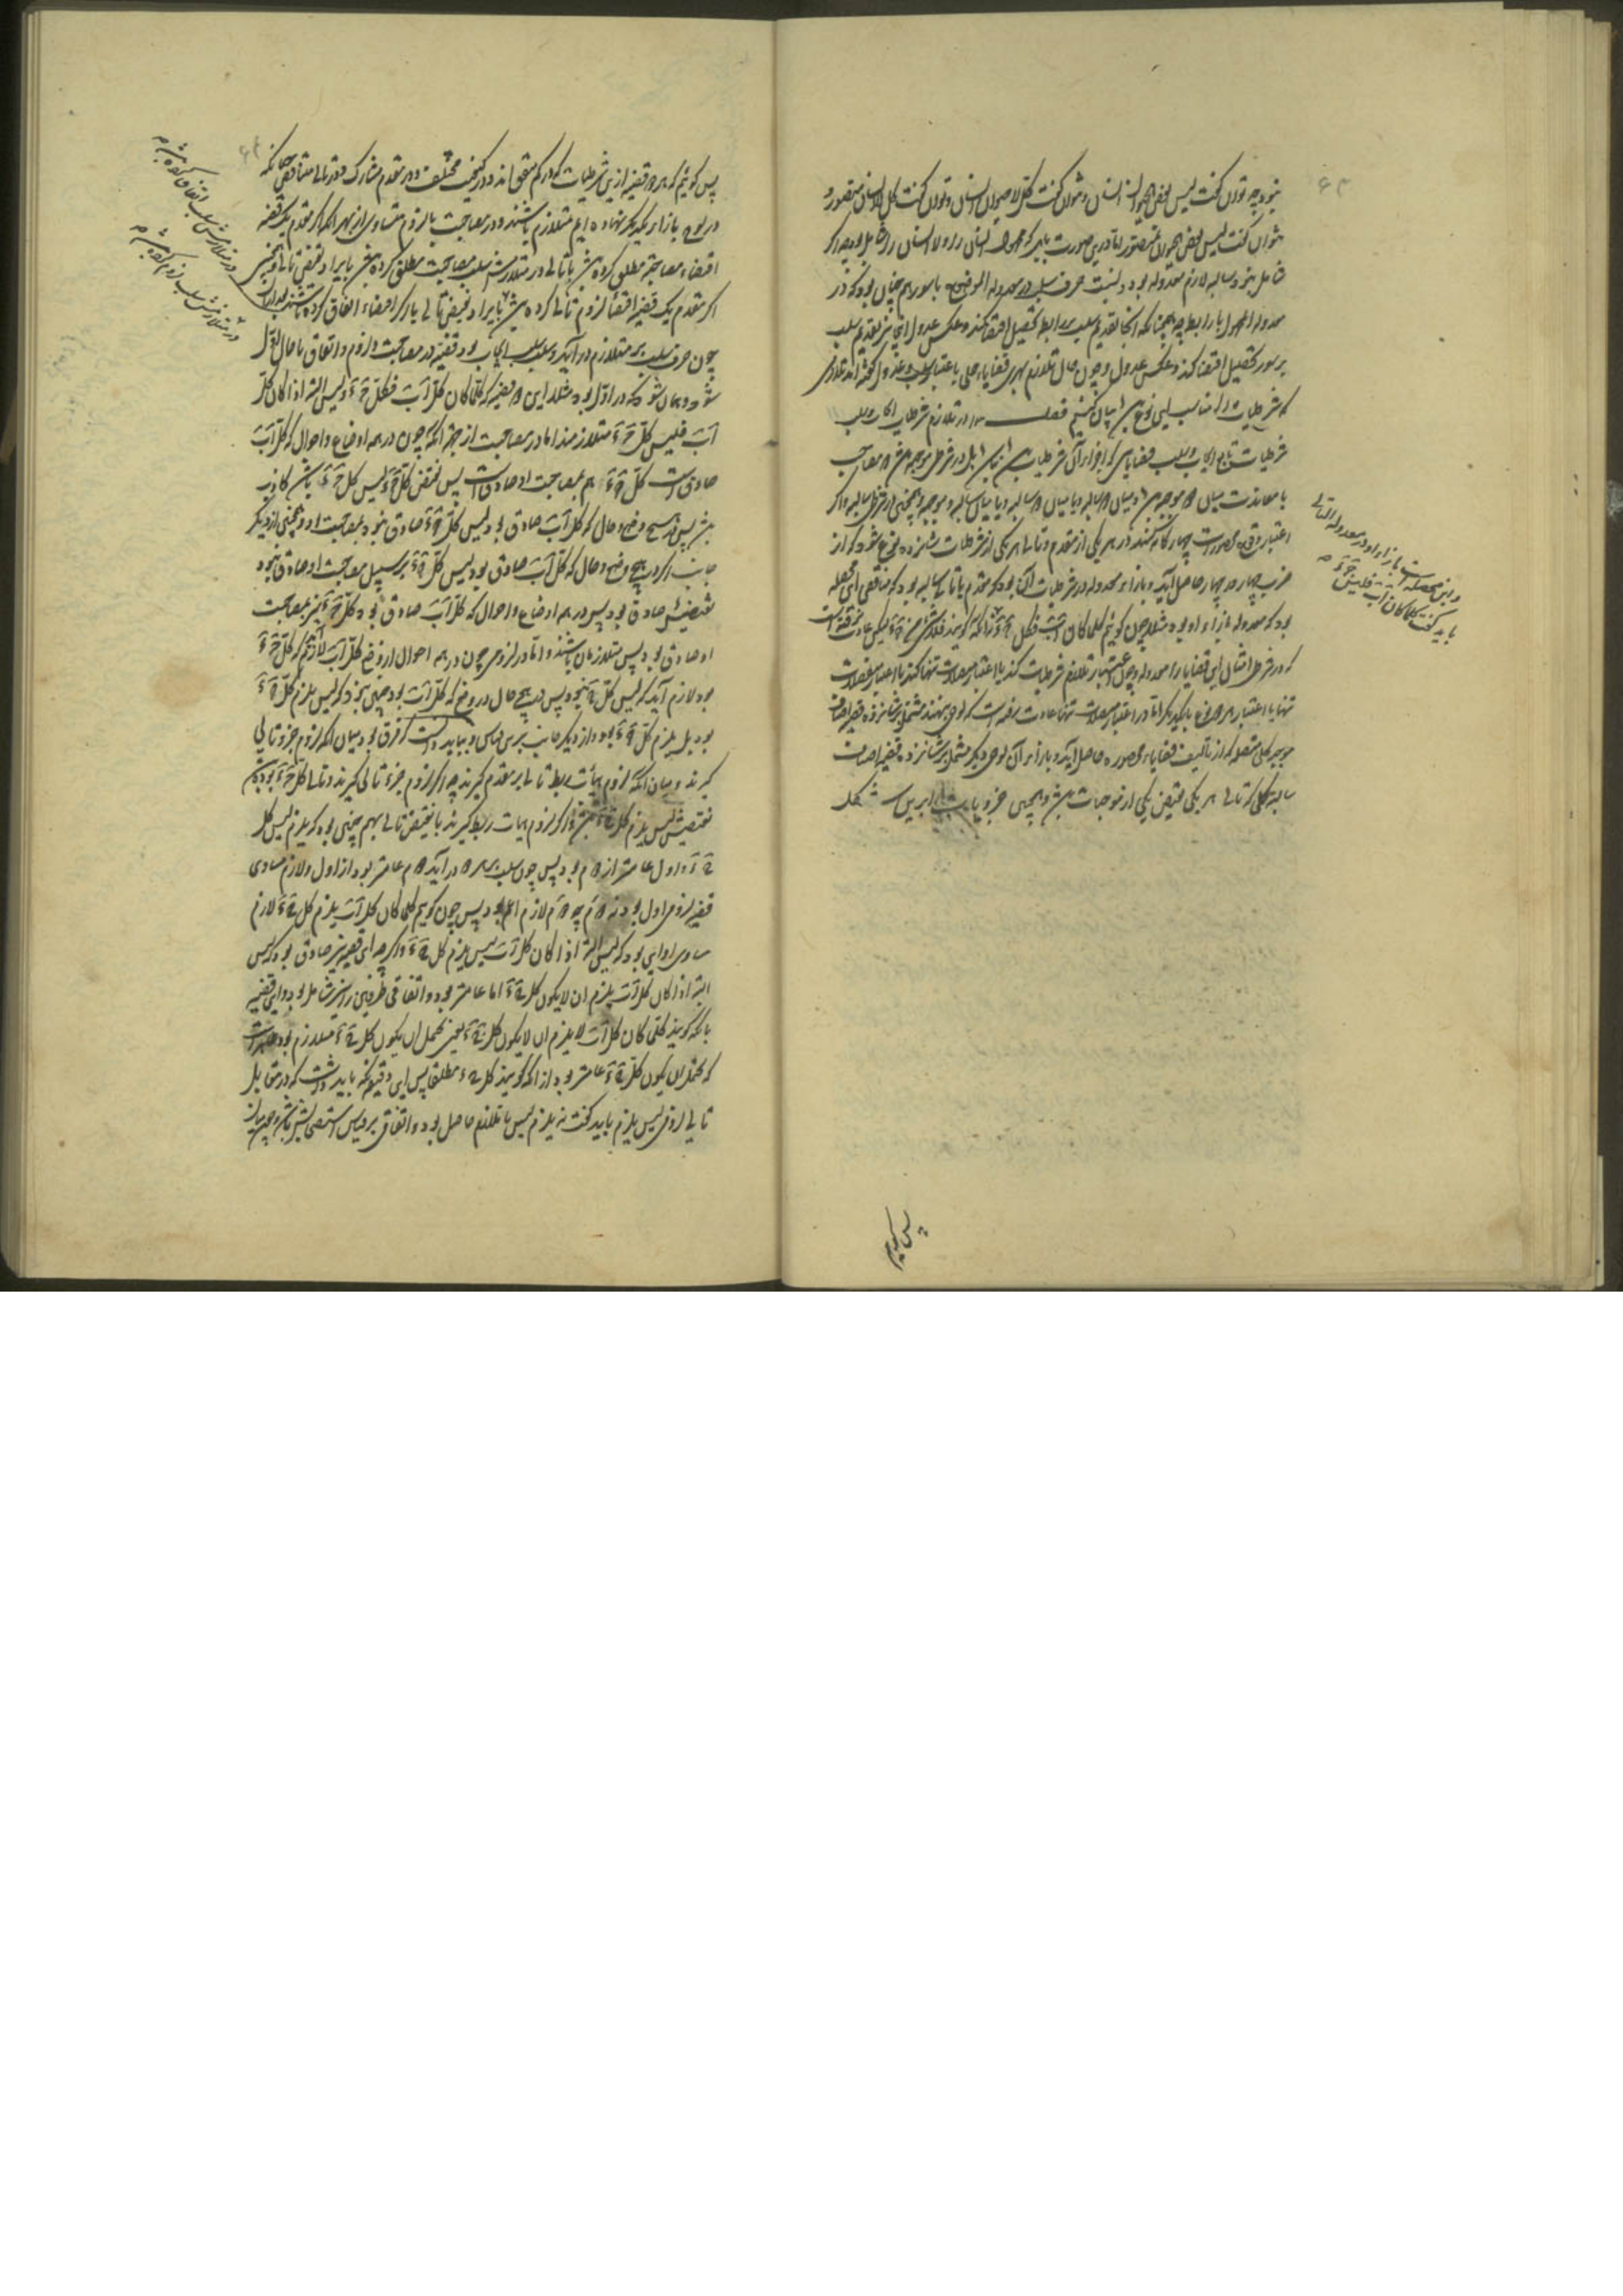 نبود چه توان گفت لیس بعض الحیوان انسان و نتوان گفت کل لا حیوان انسان و توان گفت کل لا انسان متصور و
نتوان گفت لیس بعض الحیوان متصور اما درین صورت باید که حیوان انسان را و لا انسان را شامل بود و اگر
شامل نبود سالبه لازم معدوله بود و نسبت حرف سلب در معدولة الموضوع با سور هم چنان بود که در
معدولة المحمول با رابطه چه همچنانکه آنجا تقدیم سلب بر رابطه تحصیل اقتضا کند و عکس عدول اینجا نیز تقدیم سلب
بر سور تحصیل اقتضا کند و عکس عدول و چون حال تلازم بهری قضایاء حملی باعتبار سلب و عدول گفته آمد تلازم
شرطیات را مناسب این نوع هم بیان کنیم فصل در تلازم شرطیات ایجاب و سلب
شرطیات تابع ایجاب و سلب قضایائی که اجزاء آن شرطیات باشند نباشد بل در شرطی موجبه حکم بمصاحبت
یا معاندت میان دو موجبه باشد یا میان دو سالبه و یا میان سالبه و موجبه و همچنین در شرطی سالبه و اگر
اعتبار وقوع محصورات چهارگانه کنند در هر یکی از مقدم و تالی هر یکی از شرطیات شانزده نوع شود که از
ضرب چهار در چهار حاصل آید و بازاء معدوله در شرطیات آن بود که مقدم یا تالی سالبه بود که مناقض این محصله
بود که معدوله بازاء او بود مثلا چون گوئیم کلما کان اب فکل ج ء
که در شرطی امثال این قضایا را معدوله و چون اعتبار تلازم شرطیات کنند یا اعتبار متصلات تنها کنند یا اعتبار منفصلات
تنها یا اعتبار هر دو نوع با یکدیگر اما در اعتبار متصلات تنها عادت رفته است که لوحی بنهند مشتمل بر شانزده قضیه اصناف
موجبه کلی متصله که از تألیف قضایاء محصوره حاصل آید و بازاء آن لوحی دیگر مشتمل بر شانزده قضیه اصناف
سالبه کلی که تالی هر یکی نقیض یکی از موجبات باشد و همچنین جزویات برین شکل
و این محصله است بازاء او در معدولة التالی
باید گفت کلما کان اب فلیس ج ء
پس گوئیم
پس گوئیم هر دو قضیه ازین شرطیات که در کم متفق اند و در کیفیت مختلف و در مقدم مشارک و در تالی متناقض چنانکه
در لوح بازاء یکدیگر نهاده ایم متلازم باشند و در مصاحبت یا لزوم متساوی از بهر آنکه اگر مقدم یک قضیه
اقتضاء مصاحبت مطلق کرده باشد با تالی در متلازمش سلب مصاحبت مطلق کرده باشد با ایراد نقیض تالی و همچنین
اگر مقدم یک قضیه اقتضاء لزوم تالی کرده باشد با ایراد نقیض تالی یا اگر اقتضاء اتفاق کرده باشد
چون حرف سلب بر متلازم درآید و سلب سلب ایجاب بود قضیه در مصاحبت و لزوم و اتفاق با حال اول
شود و همان شود که در اول بود مثلا این دو قضیه که کلما کان کل اب فکل ج ء و لیس البته اذا کان کل
اب فلیس کل ج ء متلازمند اما در مصاحبت از جهت آنکه چون در همه اوضاع و احوال که کل اب
صادق است کل ج ء هم بمصاحبت او صادق است پس نقیض کل ج ء لیس کل ج ء باشد کاذب
باشد پس در هیچ وضع و حال که کل اب صادق بود لیس کل ج ء صادق نبود بمصاحبت او و همچنین از دیگر
جانب اگر در هیچ وضع و حال که کل اب صادق بود لیس کل ج ء بر سبیل مصاحبت او صادق نبود
نقیضش صادق بود پس در همه اوضاع و احوال که کل اب صادق بود کل ج ء نیز بمصاحبت
او صادق بود پس متلازمان باشند و اما در لزومی چون در همه احوال از وضع کل اب لازم آید که کل ج ء
بود لازم آید که لیس کل ج ء نبود پس در هیچ حال در وضع که کل اب بود چنین نبود که لیس یلزم کل ج ء
بود بل یلزم کل ج ء بود و از دیگر جانب برین قیاس و بباید دانست که فرق بود میان آنکه لزوم جزو تالی
گیرند و میان آنکه لزوم هیأت ربط تالی بر مقدم گیرند چه اگر لزوم جزء تالی گیرند و تالی کل ج ء بود
نقیضش لیس یلزم کل ج ء باشد و اگر لزوم هیأت ربط گیرند با نقیض تالی بهم چنین بود که یلزم لیس کل
ج ء و اول عام‌تر از دوم بود پس چون سلب بر هر دو درآید دوم عام‌تر بود از اول و لازم مساوی
قضیه لزومی اول بود نه دوم چه دوم لازم اعم بود پس چون گوئیم کلما کان کل اب یلزم کل ج ء لازم
مساوی او این بود که لیس البته اذا کان کل اب لیس یلزم کل ج ء و اگر چه این قضیه نیز صادق بود که لیس
البته اذا کان کل اب یلزم ان لا یکون کل ج ء اما عام‌تر بود و اتفاقی طرفین را نیز شامل بود و این قضیه
با آنکه گویند کلما کان کل اب لا یلزم ان لا یکون کل ج ء یعنی یحتمل ان یکون کل ج ء متلازم بود
که یحتمل ان یکون کل ج ء عام‌تر بود از آنکه گویند کل ج ء مطلقا پس این دقیقه نگه باید داشت که در مقابل
تالی لزومی لیس یلزم باید گفت نه یلزم لیس تا تلازم حاصل بود و اتفاقی برین قیاس
در متلازمش سلب اتفاق کرده باشد
در متلازمش سلب لزوم کرده باشد